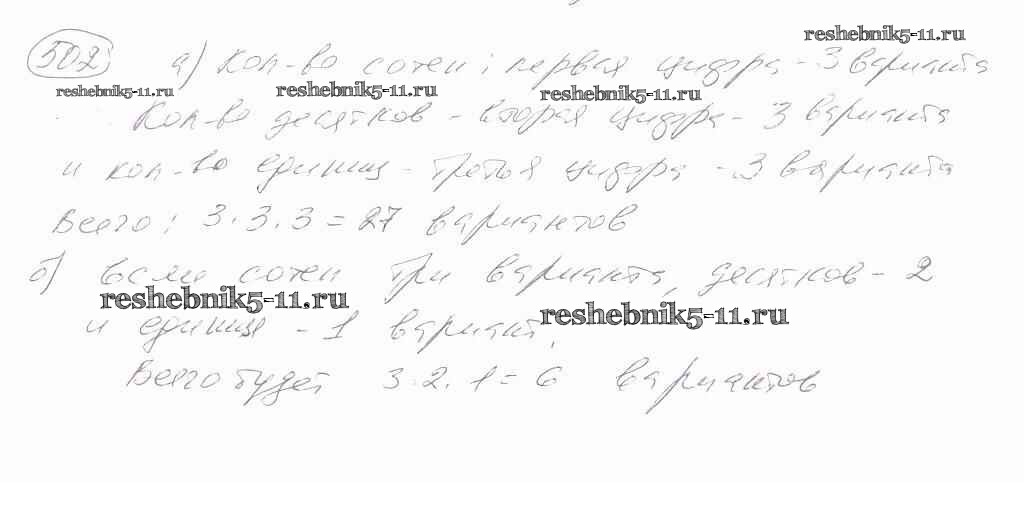 reshebnik5-11.ru
502 а) Кол-во сотен, первая цифра - 3 варианта
reshebnik5-11.ru reshebnik5-11.ru reshebnik5-11.ru
Кол-во десятков - вторая цифра - 3 варианта
и кол-во единиц - третья цифра - 3 варианта
Всего: 3·3·3 = 27 вариантов
б) Если сотен три варианта, десятков - 2
reshebnik5-11.ru reshebnik5-11.ru
и единиц - 1 вариант,
Всего будет 3·2·1 = 6 вариантов